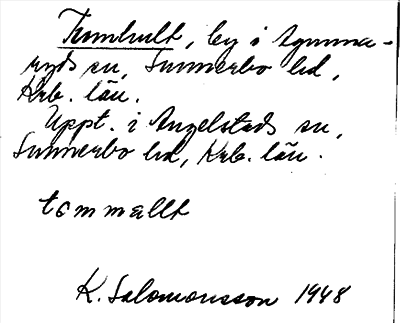 Tomhult, by i Agunna-
ryds sn, Sunnerbo hd,
Krb. län.
Uppt. i Angelstads sn,
Sunnerbo hd, Krb. län.
tommallt
K. Salomonsson 1948